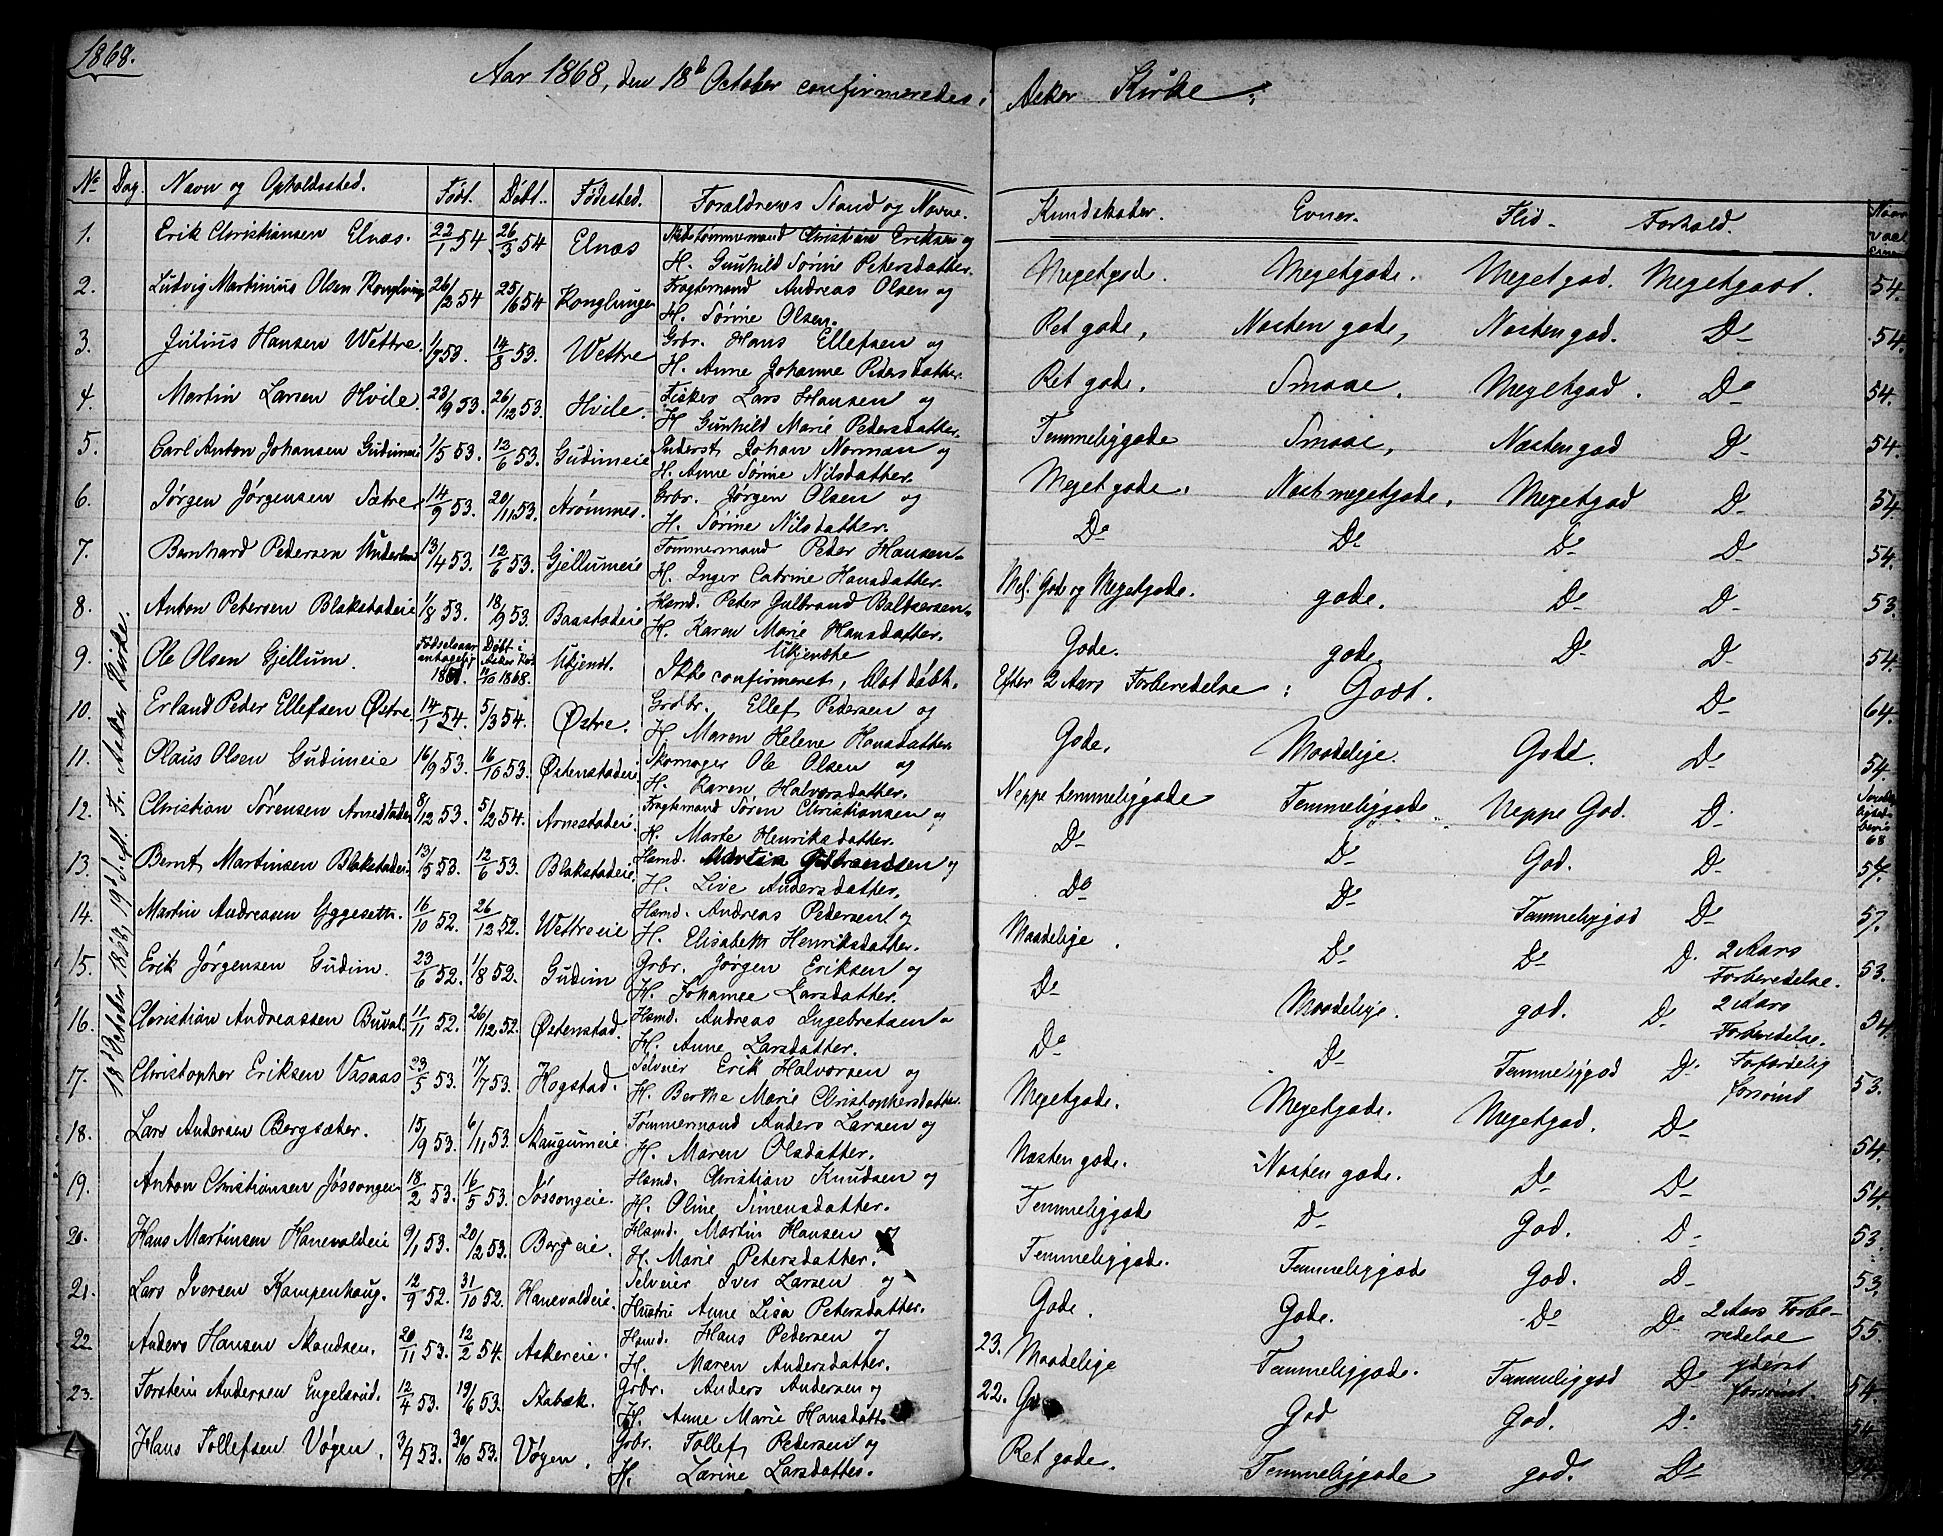 1868.
Aar 1868, den 18de October confirmeredes i Asker Kirke:
No Dag. Navn og Opholdssted. Født. Døbt. Fødested. Forældrenes Stand og Navne. Kundskaber. Evner. Flid. Forhold.
18de October 1868, 19de S. eft. Tr. Asker Kirke.
1. Erik Christiansen Elnæs. 22/1 54 26/3 54 Elnæs Christian Eriksen og H. Gunhild Sørine Petersdatter. Megetgode. Megetgode. Megetgod. Megetgodt. 54.
2. Ludvig Martinius Olsen Konglung 26/2 54 25/6 54 Konglungen Fragtemand Andreas Olsen og H. Sørine Olsen. Ret gode, Næsten gode, Næsten god. Do 54.
3. Julius Hansen Wettre. 1/7 53. 14/8 53. Wettre Grbr. Hans Ellefsen og H. Anne Johanne Pedersdatter. Ret gode. Smaae. Megetgod. Do 54.
4. Martin Larsen Hvile. 28/9 53. 26/12 53. Hvile. Fisker Lars Hansen og H. Gunhild Marie Pedersdatter. Temmeliggode Smaae, Næsten god Do 54.
5. Carl Anton Johansen Gudimeie 1/5 53. 12/6 53. Gudimeie Inderst Johan Norman og H. Anne Sørine Nilsdatter. Megetgode. Næst megetgode. Megetgod Do 54.
6. Jørgen Jørgensen Sætre 14/9 53. 20/11 53. Strømmes. Grbr. Jørgen Olsen og H. Sørine Nilsdatter. Do Do Do Do 54.
7. Bernhard Pedersen Underlund 13/4 53. 12/6 53. Gjellumeie Tømmermand Peder Hansen H. Inger Catrine Hansdatter. Mel. Gode og Megetgode. gode. Do Do 53.
8. Anton Petersen Blakstadeie 1/8 53. 18/9 53. Baastadeie Hsmd. Peter Gulbrand Baltsersen H. Karen Marie Hansdatter. Gode. gode. Do Do 54.
9. Ole Olsen Gjellum. Fødselsaar antagelig Døbt i Asker Kirke 1868. Ukjendt. Ukjendte Ikke confirmeret, blot døbt. Efter 2 Aars Forberedelse: Godt. Do 64.
10. Erland Peder Ellefsen Østre. 14/1 54. 5/3 54. Østre. Grdbr. Ellef Pedersen og H. Maren Helene Hansdatter. Gode. Maadelige. Gode. Do 54
11. Olaus Olsen Gudimeie 16/9 53. 16/10 53. Østenstadeie Skomager Ole Olsen og H. Karen Halvorsdatter. Neppe temmeliggode Temmeliggode Neppe God. Do 68
12. Christian Sørensen Arnestadeie 8/12 53. 5/2 54. Arnestadeie Fragtemand Søren Christiansen og H. Marte Henriksdatter. Do Do God. Do 54.
13. Bernt Martinsen Blakstadeie. 13/5 53. 12/6 53. Blakstadeie. Hsmd. Martin Gulbrandsen og H. Live Andersdatter. Do Do Temmeliggod Do 57.
14. Martin Andreasen Yggesett. 16/10 52. 26/12 52. Wettreeie Hsmd. Andreas Pedersen og H. Elisabeth Henriksdatter. Maadelige. Do Do Do 2 Aars Forberedelse. 53.
15. Erik Jørgensen Gudim. 23/6 52. 1/8 52. Gudim Grbr. Jørgen Eriksen og H. Johanne Larsdatter. Do Maadelige. god. Do 2 Aars Forberedelse. 54.
16. Christian Andreassen Buval 11/11 52. 26/12 52. Østenstad. Hsmd. Andreas Ingebretsen H. Anne Larsdatter. Do Do Temmeliggod Do Forfærdelig forsømt 53.
17. Christopher Eriksen Vasaas 23/5 53. 17/7 53. Hogstad. Selveier Erik Halvorsen og H. Berthe Marie Christophersdatter. Megetgode. Megetgode. Megetgod. Do 54.
18. Lars Andersen Bergsæter. 15/9 53. 6/11 53. Skaugumeie. Tømmermand Anders Larsen og H. Maren Olsdatter. Næsten gode. Næsten gode. Do Do 54.
19. Anton Christiansen Jøssongeie 18/2 53. 16/5 53. Jøssongeie. Hsmd. Christian Knudsen og H. Oline Simensdatter. Temmeliggode Do God. Do 53.
20. Hans Martinsen Hanevoldeie 9/1 53. 20/2 53. Bergeie. Hsmd. Martin Hansen og H. Marie Petersdatter. Temmeliggode. Temmeliggode God. Do 53.
21. Lars Iversen Kampenhaug. 12/9 52. 31/10 52. Hanevoldeie. Selveier Iver Larsen og Hustru Anne Lisa Petersdatter. Gode. Gode. Do Do 2 Aars Forberedelse 55.
22 Anders Hansen Skaudsen. 20/11 53. 12/2 54. Askereie. Hsmd. Hans Pedersen og H. Maren Andersdatter. 23. Maadelige Temmeliggode. Temmeliggod Do yderst forsømt. 54.
23. Torstein Andersen Engelsrud. 12/4 53. 19/6 53. Aabæk. Grbr. Anders Andersen og H. Anne Marie Hansdatt 22. God God. Do 54
Hans Tollefsen Vøgen. 3/9 53. 30/10 53. Vøgen. Grbr. Tollef Pedersen og H. Larine Larsdatter. Ret gode. Temmeliggode god. Do